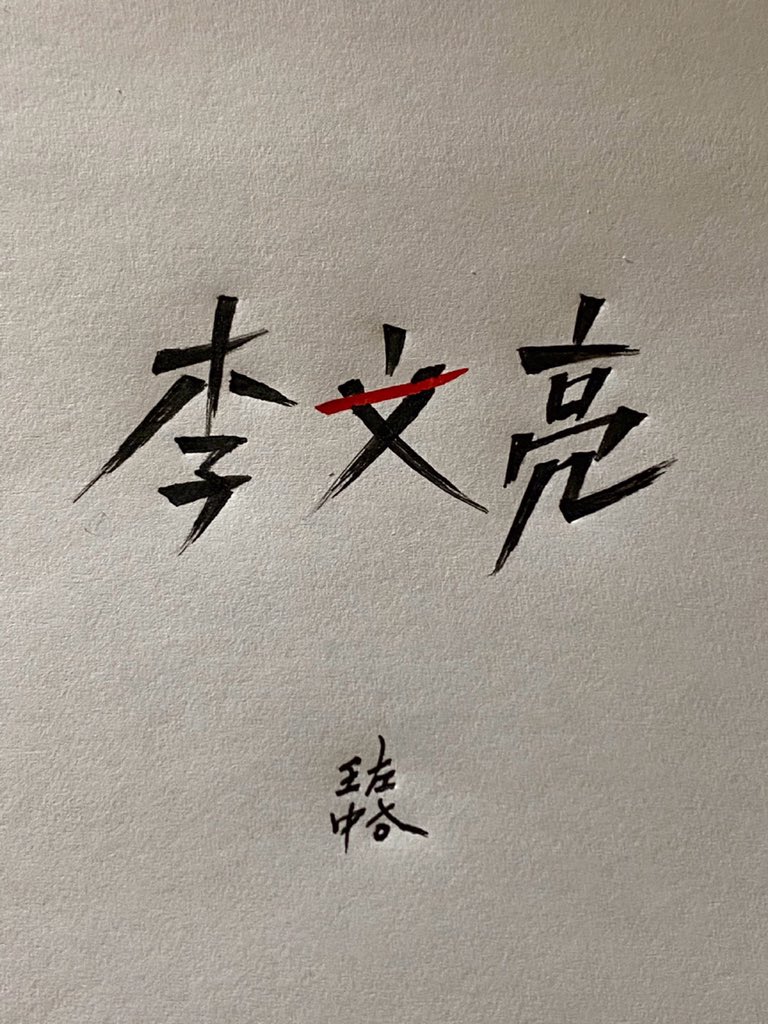 李文亮
王左
中右